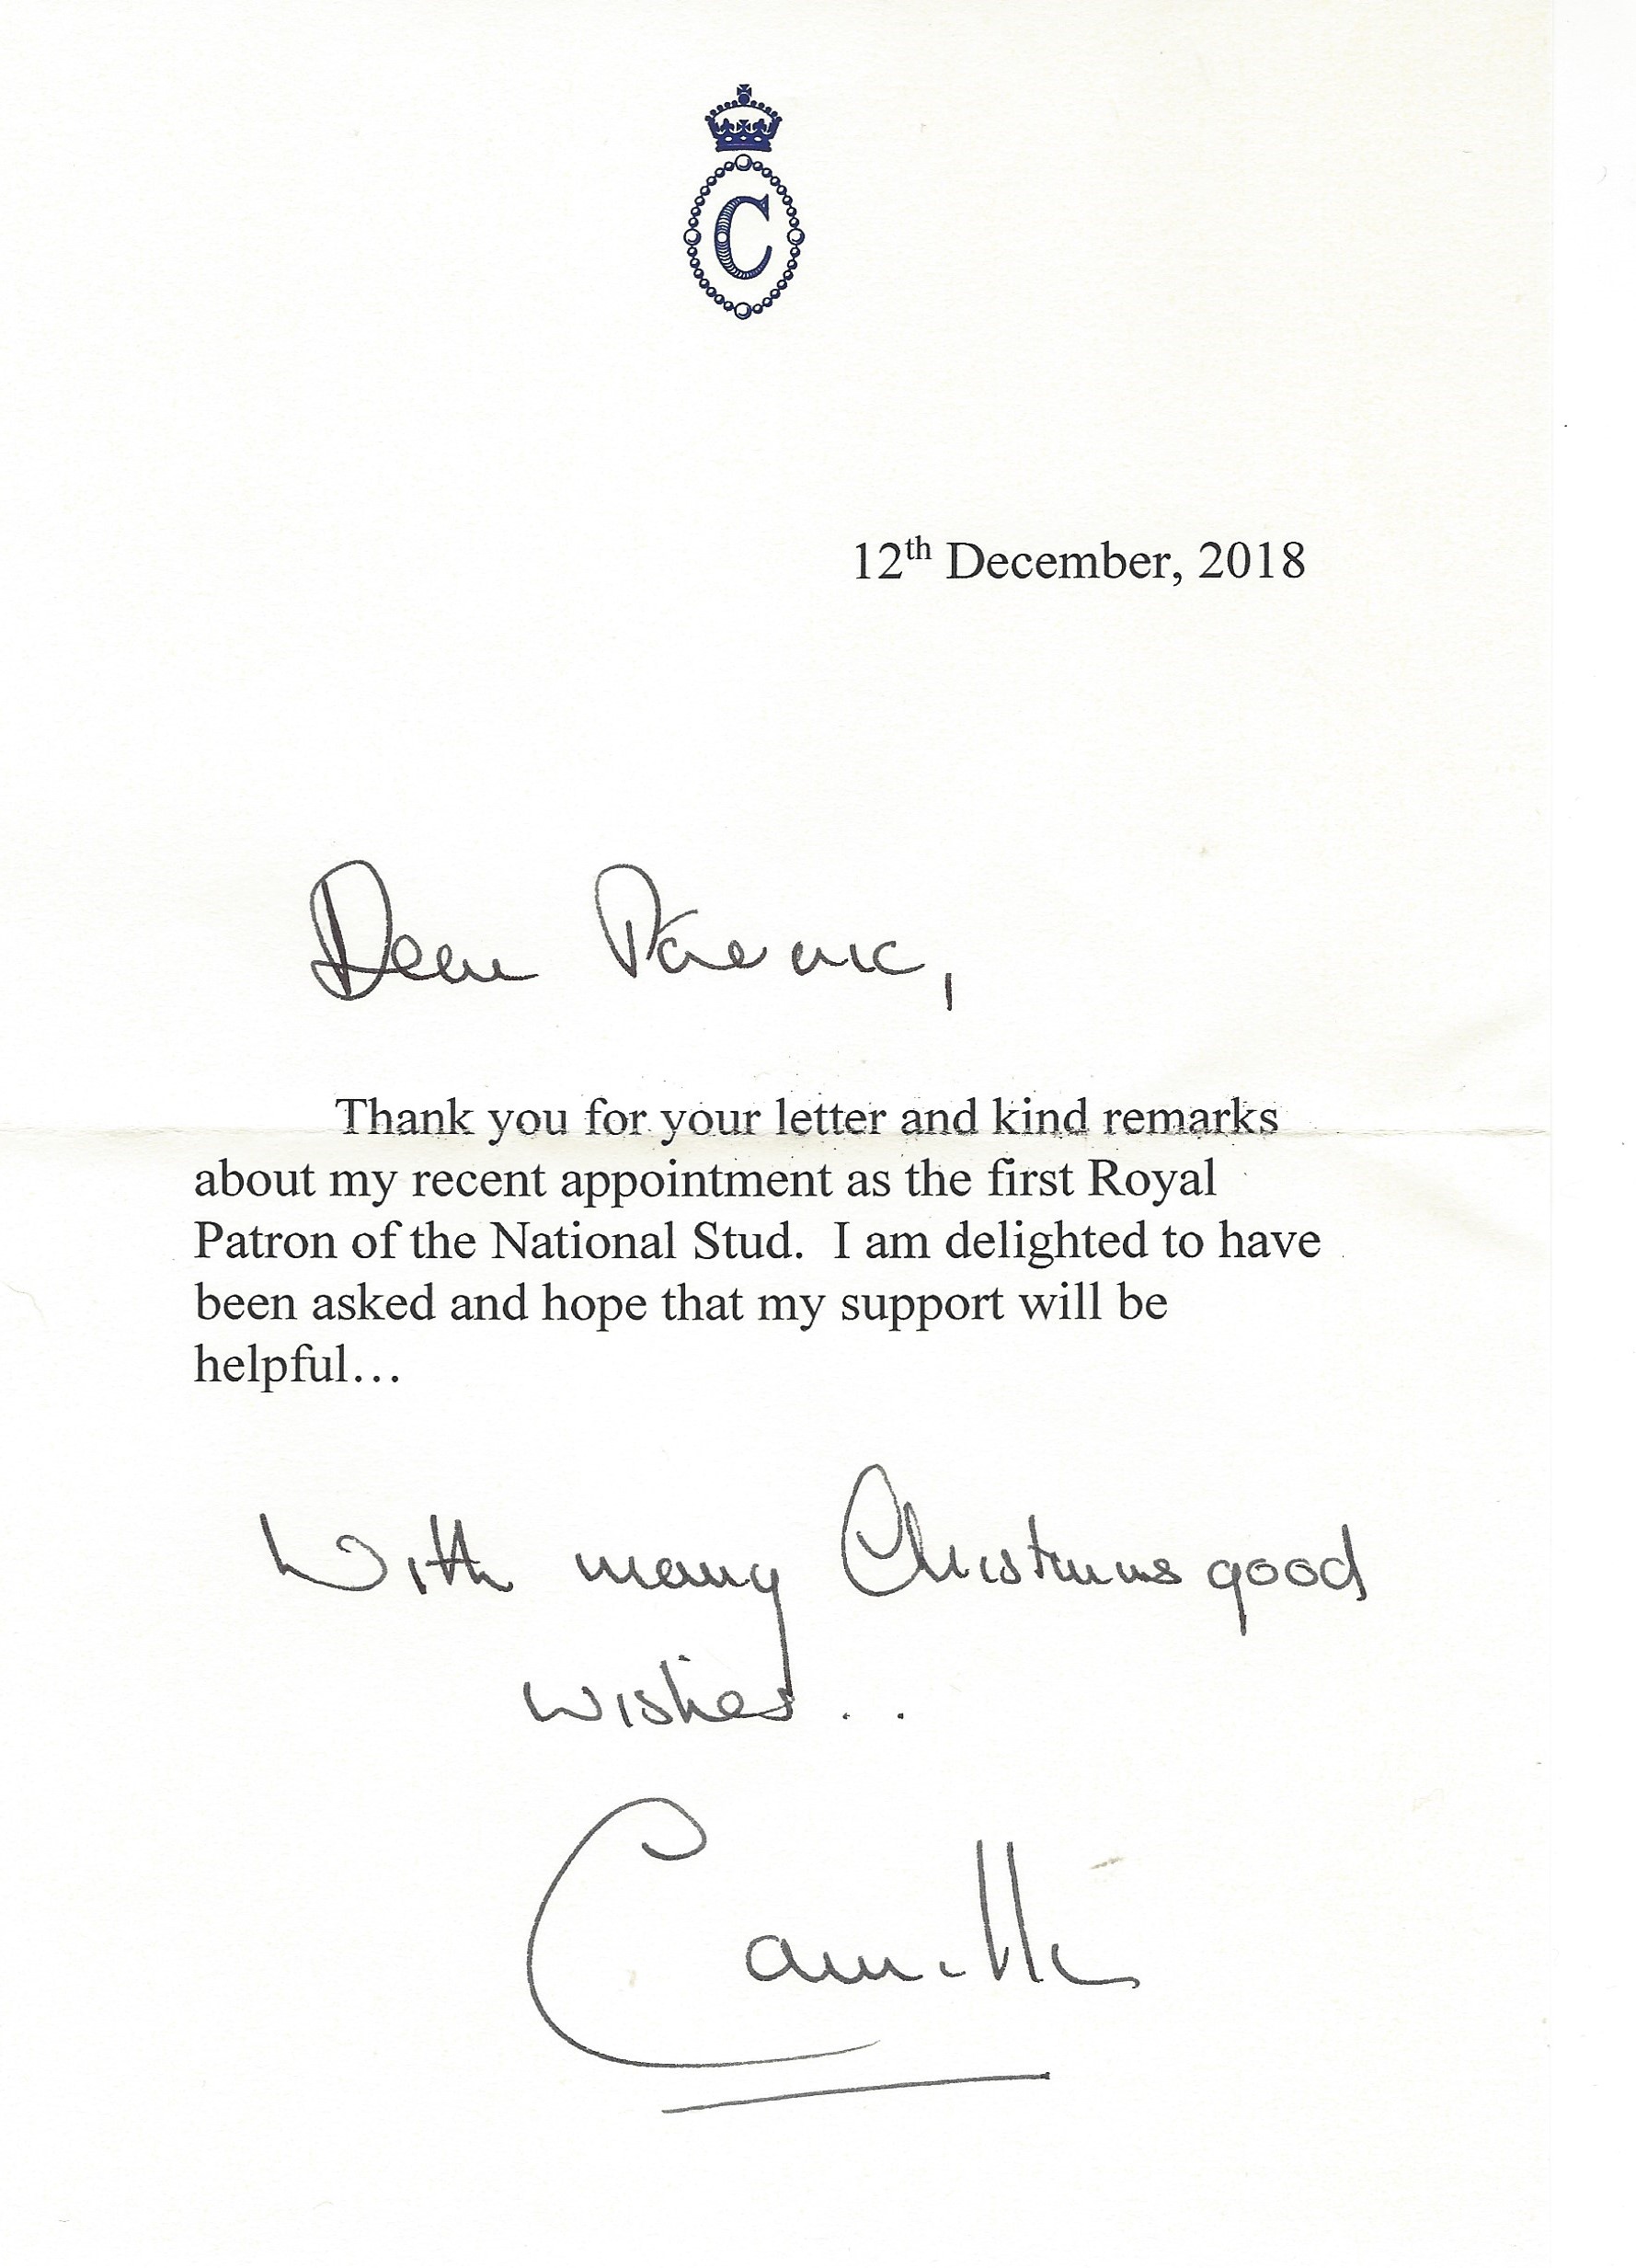 C
12th December, 2018
Dear
Thank you for your letter and kind remarks
about my recent appointment as the first Royal
Patron of the National Stud.  I am delighted to have
been asked and hope that my support will be
helpful…
With many Christmas good
wishes...
Camilla